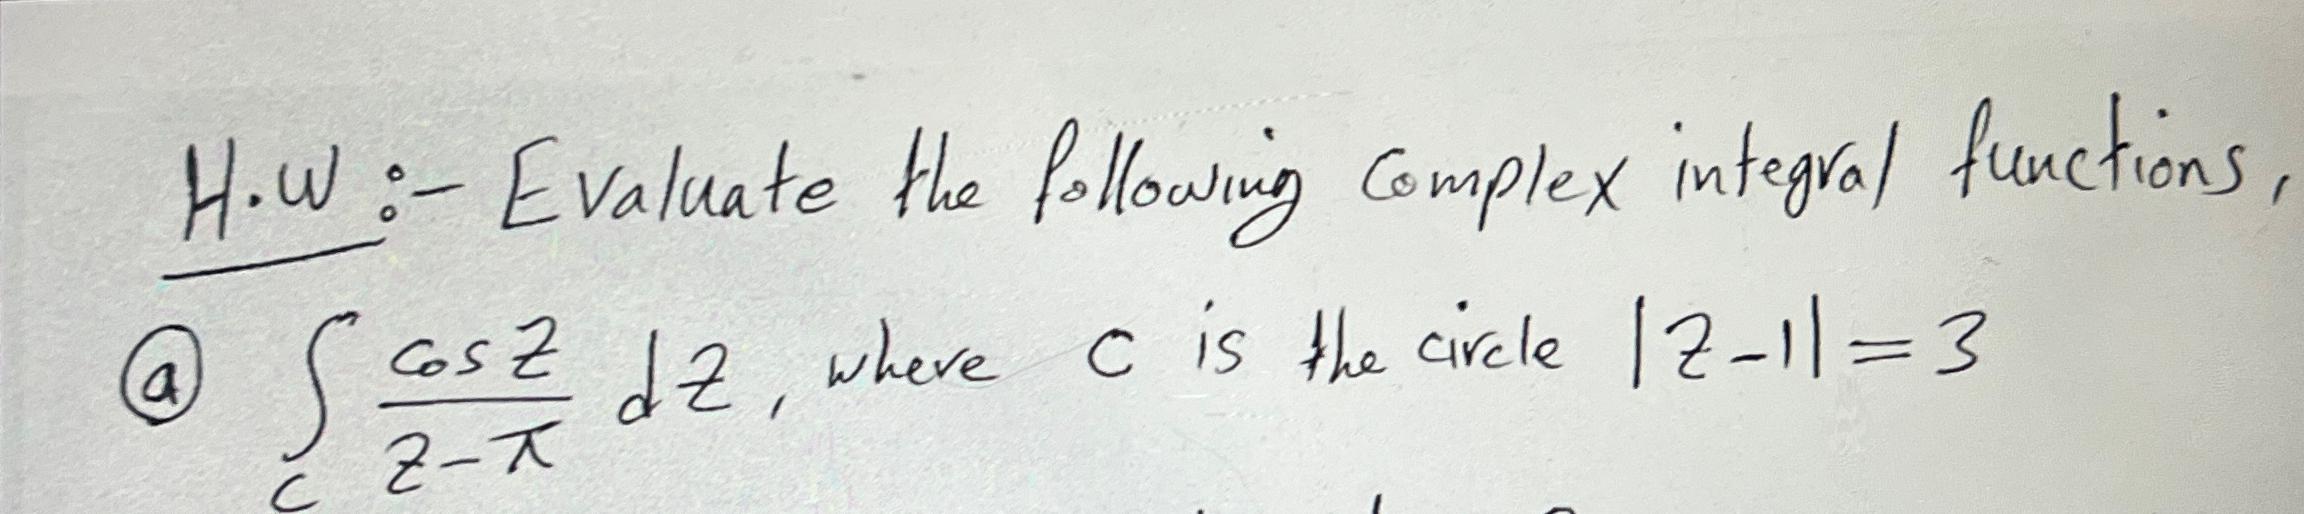 H.W :- Evaluate the following complex integral functions,
ⓐ ∫_C cos z / (z-π) dz, where C is the circle |z-1| = 3